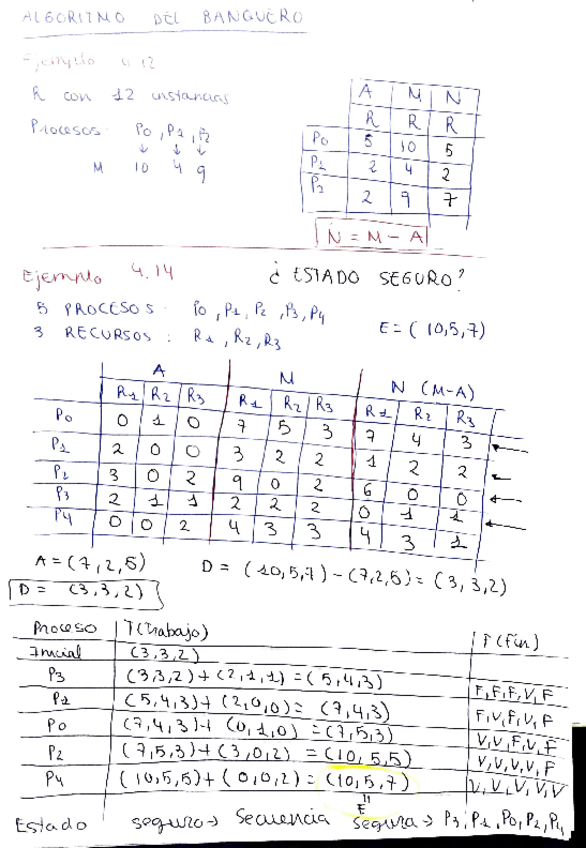 ALGORITMO DEL BANQUERO
Ejemplo 4.12
R con 12 instancias
Procesos: P0, P1, P2
↓ ↓ ↓
M 10 4 9
A M N
R R R
P0 5 10 5
P1 2 4 2
P2 2 9 7
N = M - A
Ejemplo 4.14 ¿ ESTADO SEGURO?
5 PROCESOS: P0, P1, P2, P3, P4
3 RECURSOS: R1, R2, R3
E = (10,5,7)
A M N (M-A)
R1 R2 R3 R1 R2 R3 R1 R2 R3
P0 0 1 0 7 5 3 7 4 3 ←
P1 2 0 0 3 2 2 1 2 2 ←
P2 3 0 2 9 0 2 6 0 0 ←
P3 2 1 1 2 2 2 0 1 1 ←
P4 0 0 2 4 3 3 4 3 1
A = (7,2,5) D = (10,5,7) - (7,2,5) = (3,3,2)
D = (3,3,2)
Proceso T(trabajo) F(fin)
Inicial (3,3,2)
P3 (3,3,2) + (2,1,1) = (5,4,3) F,F,F,V,F
P1 (5,4,3) + (2,0,0) = (7,4,3) F,V,F,V,F
P0 (7,4,3) + (0,1,0) = (7,5,3) V,V,F,V,F
P2 (7,5,3) + (3,0,2) = (10,5,5) V,V,V,V,F
P4 (10,5,5) + (0,0,2) = (10,5,7) V,V,V,V,V
"
E
Estado seguro → Secuencia segura → P3, P1, P0, P2, P4